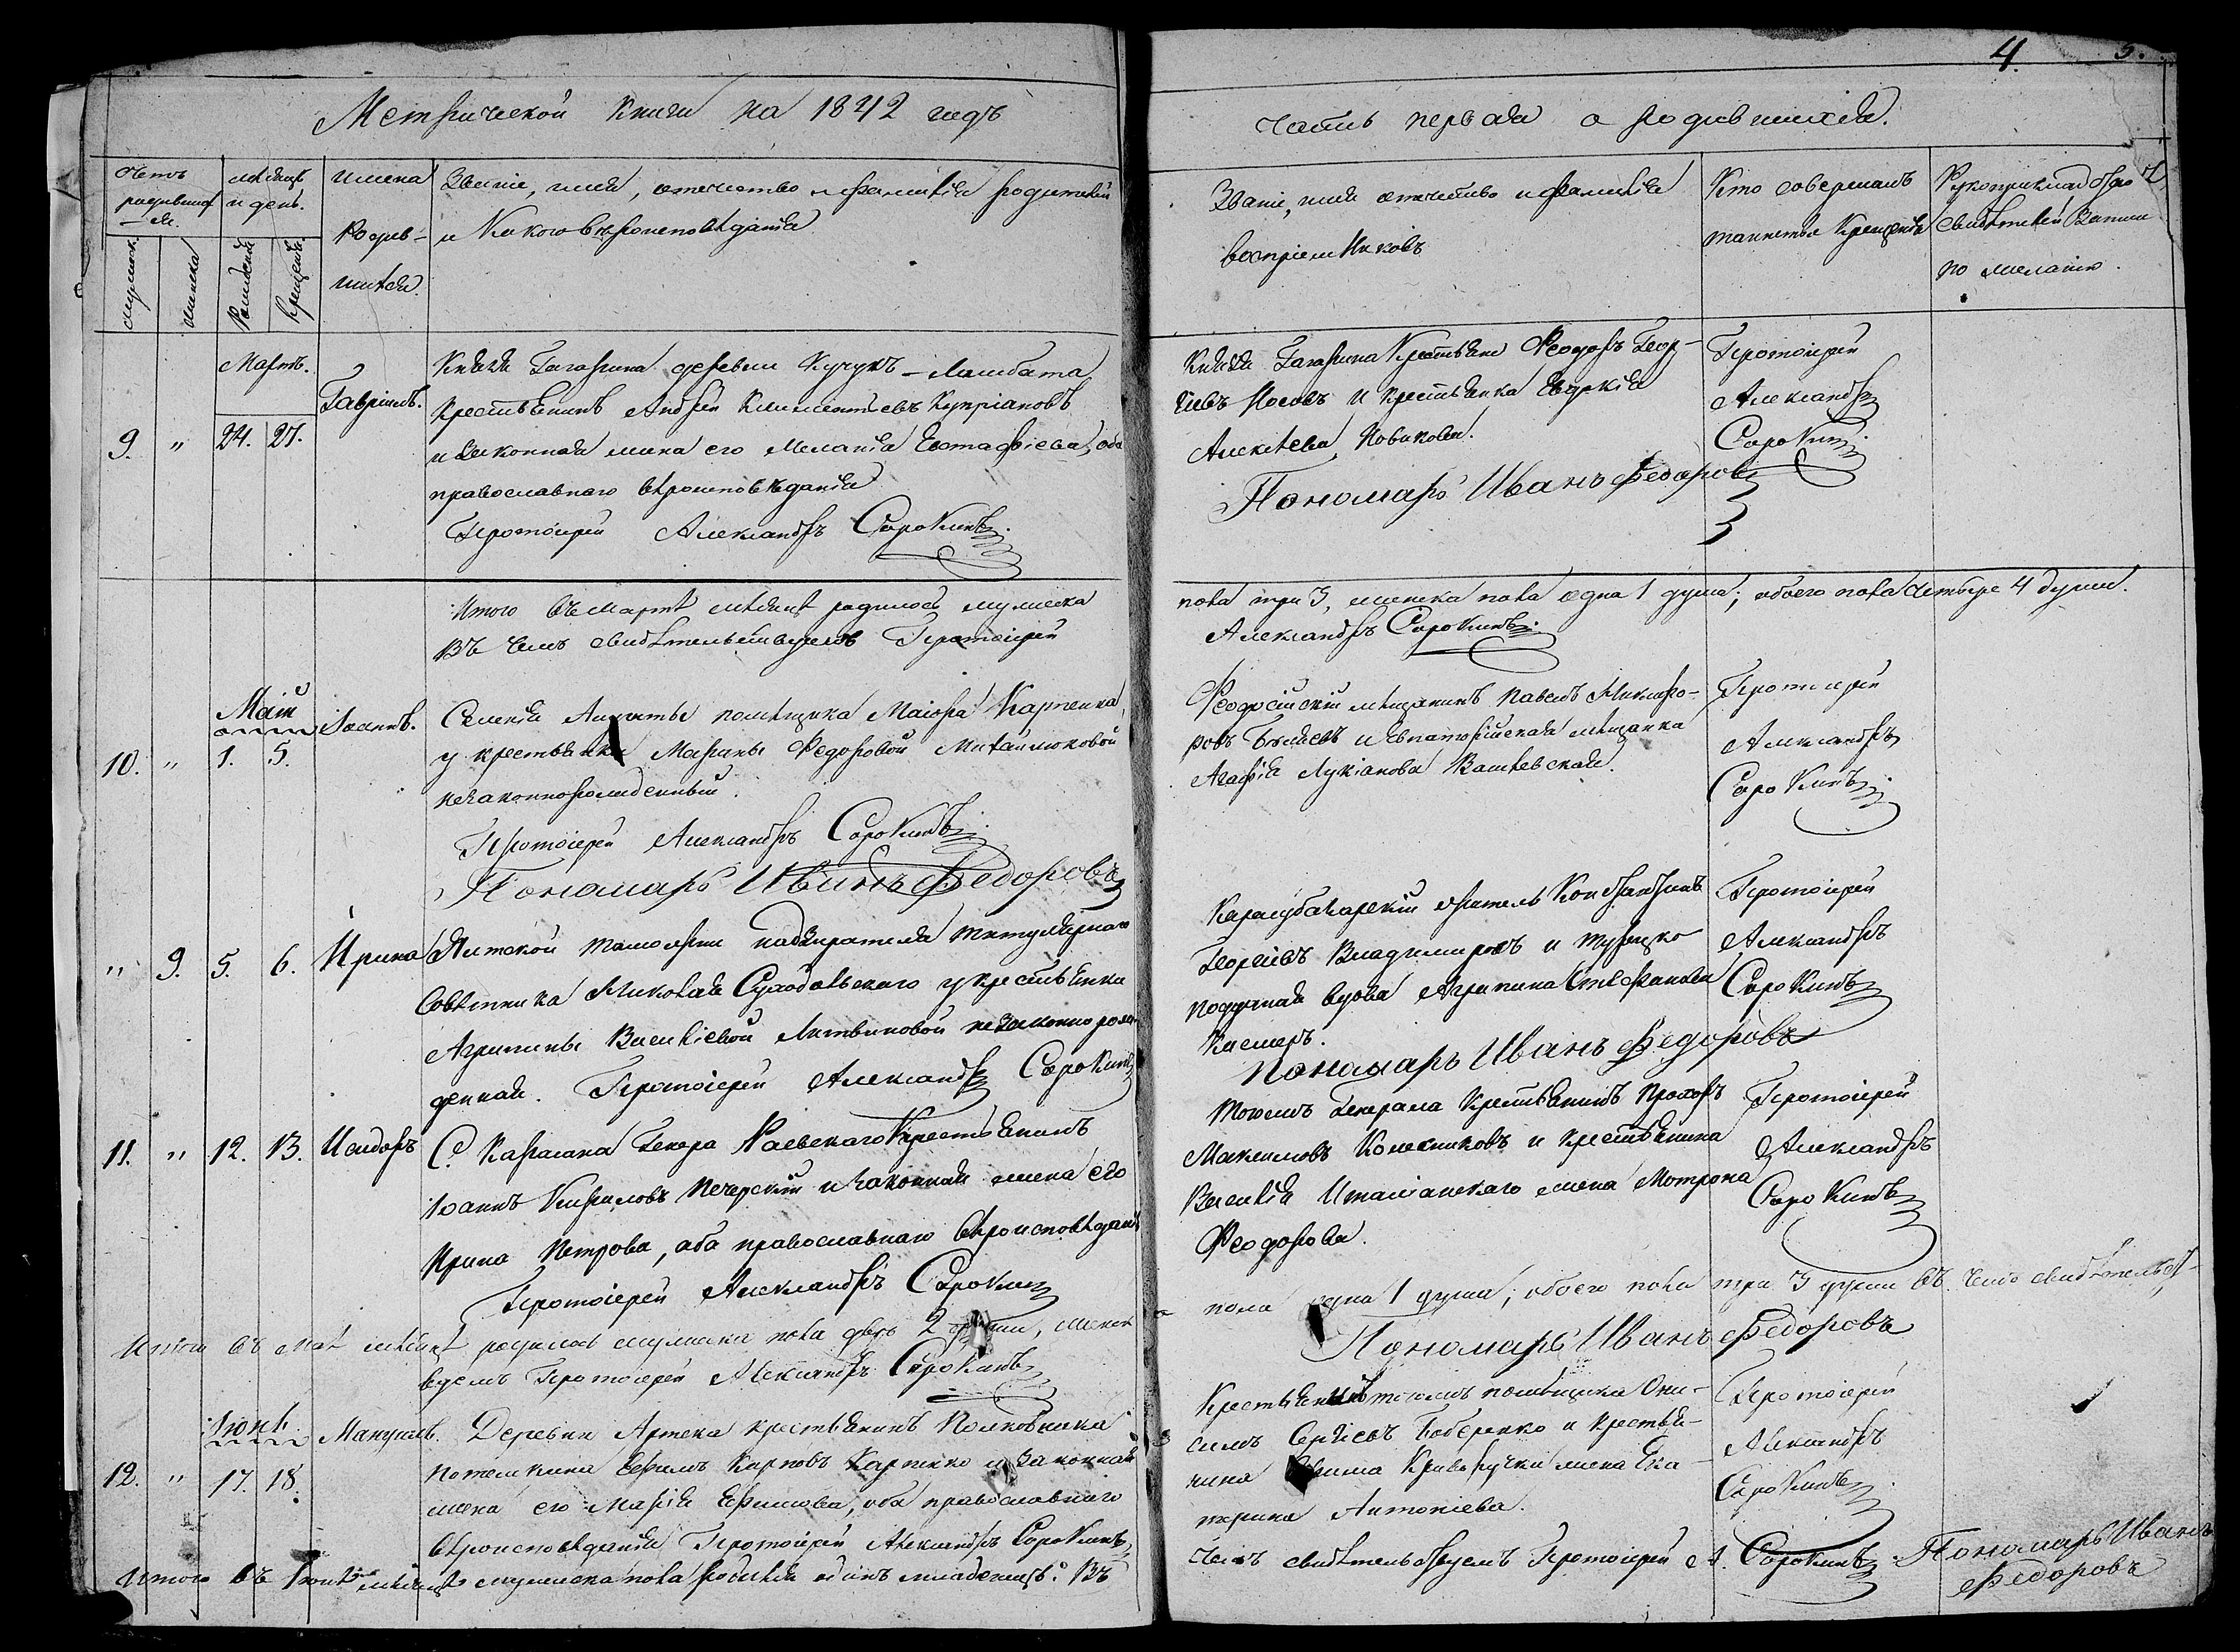 Метрической книги на 1842 годъ
Счетъ родившихся.
мѣсяцъ и день.
мужеск.
женска
Рожденія
Крещенія
имена Родившихся.
Званіе, имя, отчество и фамилія родителей
и Какого вѣроисповѣданія
Мартъ.
9. " 24. 27. Гавріилъ.
Князя Гагарина деревни Кучукъ-Ламбата
крестьянинъ Андрей Климентьевъ Купріановъ
и законная жена его Меланія Евстафіева, оба
православнаго вѣроисповѣданія
Протоіерей Александръ Сорокинъ.
Итого въ Мартѣ мѣсяцѣ родилось мужеска
Въ чемъ свидѣтельствуемъ Протоіерей
Май
10. " 1. 5. Іоаннъ.
Селенія помѣщика Маіора Карпенка,
у крестьянки Марины Федоровой
незаконнорожденный.
Протоіерей Александръ Сорокинъ.
Пономарь Иванъ Федоровъ
" 9. 5. 6. Ирина
Ялтской таможни надзирателя титулярнаго
Совѣтника Николая Суходольскаго у крестьянки
Агрипины Василіевой Литвиновой незаконно рож-
денная. Протоіерей Александръ Сорокинъ
11. " 12. 13. Исидоръ
С. Карасана Генера Раевскаго Крестьянинъ
Іоаннъ Кириловъ Печерскій и законная жена его
Ирина Петрова, оба православнаго вѣроисповѣданія
Протоіерей Александръ Сорокинъ
Итого въ Маѣ мѣсяцѣ родилось мужеска пола двѣ 2 души, женск
вуемъ Протоіерей Александръ Сорокинъ
Іюнь
12. " 17. 18. Мануилъ.
Деревни Артека крестьянинъ Полковника
Потемкина Ефимъ Карповъ Карпенко и законная
жена его Марія Ефимова, оба православнаго
вѣроисповѣданія Протоіерей Александръ Сорокинъ
Итого въ Іюнѣ мѣсяцѣ мужеска пола родился одинъ младенецъ. Въ
4. 5.
часть первая о родившихся.
Званіе, имя отчество и фамилія
воспріемниковъ
Кто совершалъ
таинство Крещенія
Рукоприкладство
свидѣтелей Записи
по желанію.
Князя Гагарина Крестьяне Феодоръ Геор-
гіевъ Носовъ и крестьянка Евдокія
Алексѣева Новикова.
Пономарь Иванъ Федоровъ
Протоіерей
Александръ
Сорокинъ.
пола три 3, женска пола одна 1 душа; обоего пола четыре 4 души.
Александръ Сорокинъ.
Феодосійскій мѣщанинъ Павелъ Никифо-
ровъ Бѣляевъ и Евпаторійская мѣщанка
Агафія Лукіанова
Протоіерей
Александръ
Сорокинъ.
Карасубазарскій житель Константинъ
Георгіевъ Владимировъ и турецко
подданая вдова Агрипина Стефанова
Пономарь Иванъ Федоровъ
Протоіерей
Александръ
Сорокинъ
тогожъ Генерала Крестьянинъ Прохоръ
Максимовъ Колесниковъ и крестьянина
Василія жена Мотрона
Феодорова.
Протоіерей
Александръ
Сорокинъ
пола одна 1 душа; обоего пола три 3 души въ чемъ свидѣтельст-
Пономарь Иванъ Федоровъ
Крестьянинъ тогожъ помѣщика Они-
симъ Сергіевъ Бобренко и крестья-
нина Криворучки жена Ека-
терина Антоніева.
Протоіерей
Александръ
Сорокинъ
чемъ свидѣтельствуемъ Протоіерей А. Сорокинъ
Пономарь Иванъ
Федоровъ